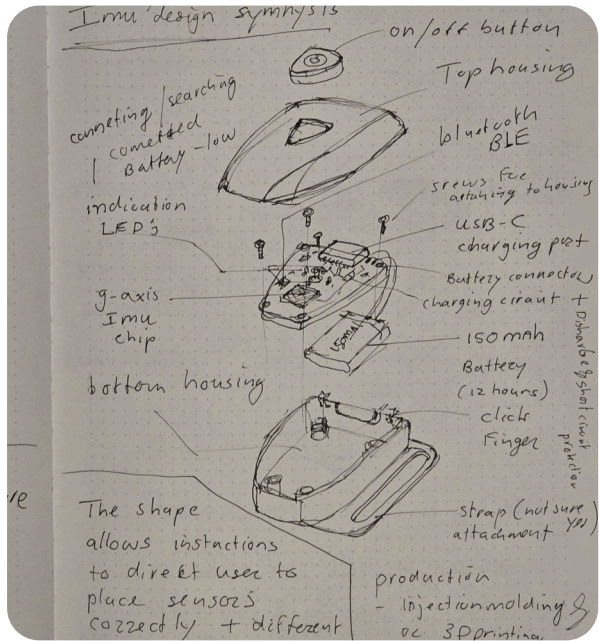 Imu design symnysis
on/off button
Top housing
conneting / searching
/ conetted
Battery-low
bluetooth
BLE
screws for
attaching to housing
indication
LED's
USB-C
charging port
Battery connector
charging circuit
+ Disharbe & short circuit
protection
g-axis
Imu
chip
150mAh
150 mAh
Battery
(12 hours)
bottom housing
click
Finger
strap (not sure
yes)
attachment
The shape
allows instactions
to direkt user to
place sensors
correctly + different
production
- Injectionmolding &
or 3D printing